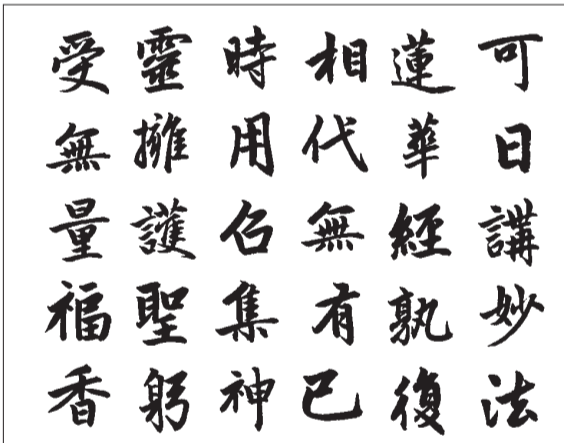 可日講妙法
蓮華經孰復
相代無有已
時用召集神
靈擁護聖躬
受無量福香